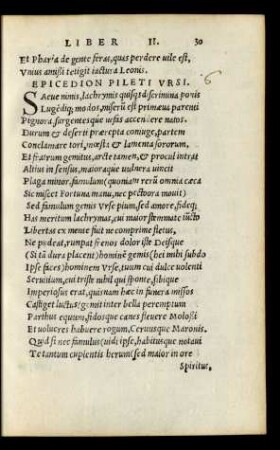 LIBER II. 30
6
Et Phariæ de gente feras, quas perdere uile est,
Vnius amissi tetigit iactura Leonis.
EPICEDION PILETI VRSI.
SAeue nimis, lachrymis quisquis discrimina ponis
Lugēdiq; modos, miserū est primæua parenti
Pignora, surgentesque nefas accendere natos.
Durum & deserti prærepta coniuge, partem
Conclamare tori, mœsta & lamenta sororum,
Et fratrum gemitus, arcte tamen, & procul intrat
Altius in sensus, maioraque uulnera uincit
Plaga minor, famulum (quoniam rerū omnia cæca
Sic miscet Fortuna manu, nec pectora nouit)
Sed famulum gemis Vrse pium, sed amore, fideq;
Has meritum lachrymas, cui maior stemmate iūcto
Libertas ex mente fuit ne comprime fletus,
Ne pudeat, rumpat frenos dolor iste Deisque
(Si tā dura placent) hominē gemis (hei mihi subdo
Ipse faces) hominem Vrse, tuum cui dulce uolenti
Seruitium, cui triste nihil qui sponte, sibique
Imperiosus erat, quisnam hæc in funera missos
Castiget luctus? gemit inter bella peremptum
Parthus equum, fidosque canes fleuere Molossi
Et uolucres habuere rogum, Ceruusque Maronis.
Quid si nec famulus? uidi ipse, habitusque notaui
Te tantum cupientis herum, sed maior in ore
Spiritus,